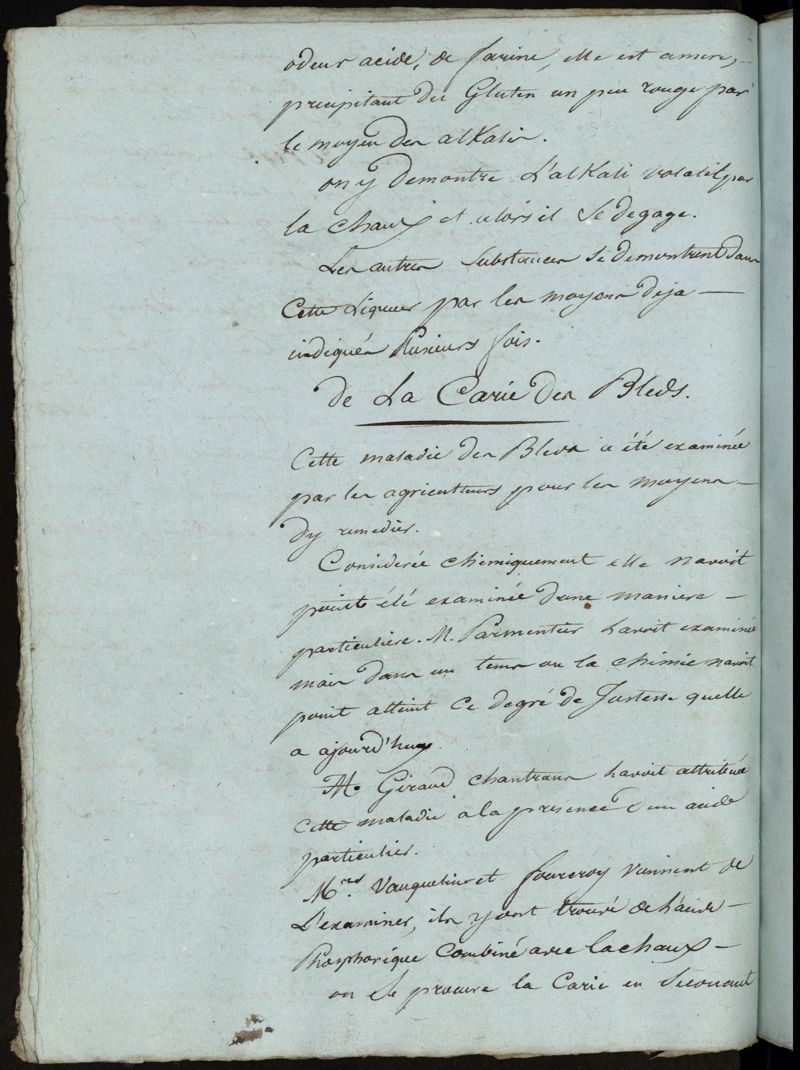 odeur acide, de farine, elle est amere,
precipitant du Gluten un peu rouge par
le moyen des alkalis.
on y demontre L'alkali volatil par
la chaux et alors il se degage.
Les autres substances se demontrent dans
Cette Liqueur par les moyens deja —
indiqués Plusieurs fois.
de La Carie des Bleds.
Cette maladie des Bleds a été examinée
par les agriculteurs pour les moyens —
dy remedier.
Considerée chimiquement elle navoit
point été examinée dune maniere —
particuliere. M. Parmentier lavoit examinée
mais dans un tems ou la chimie navoit
point atteint ce degré de Justesse quelle
a ajourd'huy.
M. Giraud chantrans lavoit attribuée
Cette maladie a la presence d'un acide
particulier.
Mrs. Vauquelin et fourcroy viennent de
L'examiner, ils y ont trouvé de l'acide —
Phosphorique Combiné avec la chaux —
on se procure la Carie en secouant